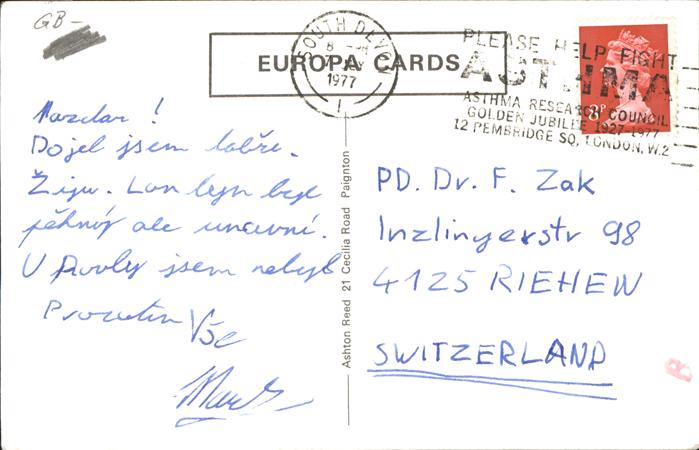 GB-
EUROPA CARDS
SOUTH DEVON
1977
1
PLEASE HELP FIGHT
ASTHMA
ASTHMA RESEARCH COUNCIL
GOLDEN JUBILEE 1927-1977
12 PEMBRIDGE SQ, LONDON, W.2
8P
Nazdar!
Dojel jsem dobře.
Žiju. Londýn byl
pěkný ale unavní.
U Pavly jsem nebyl
Prozatím Vše
Ashton Reed 21 Cecilia Road Paignton
PD. Dr. F. Zak
Inzlingerstr 98
4125 RIEHEN
SWITZERLAND